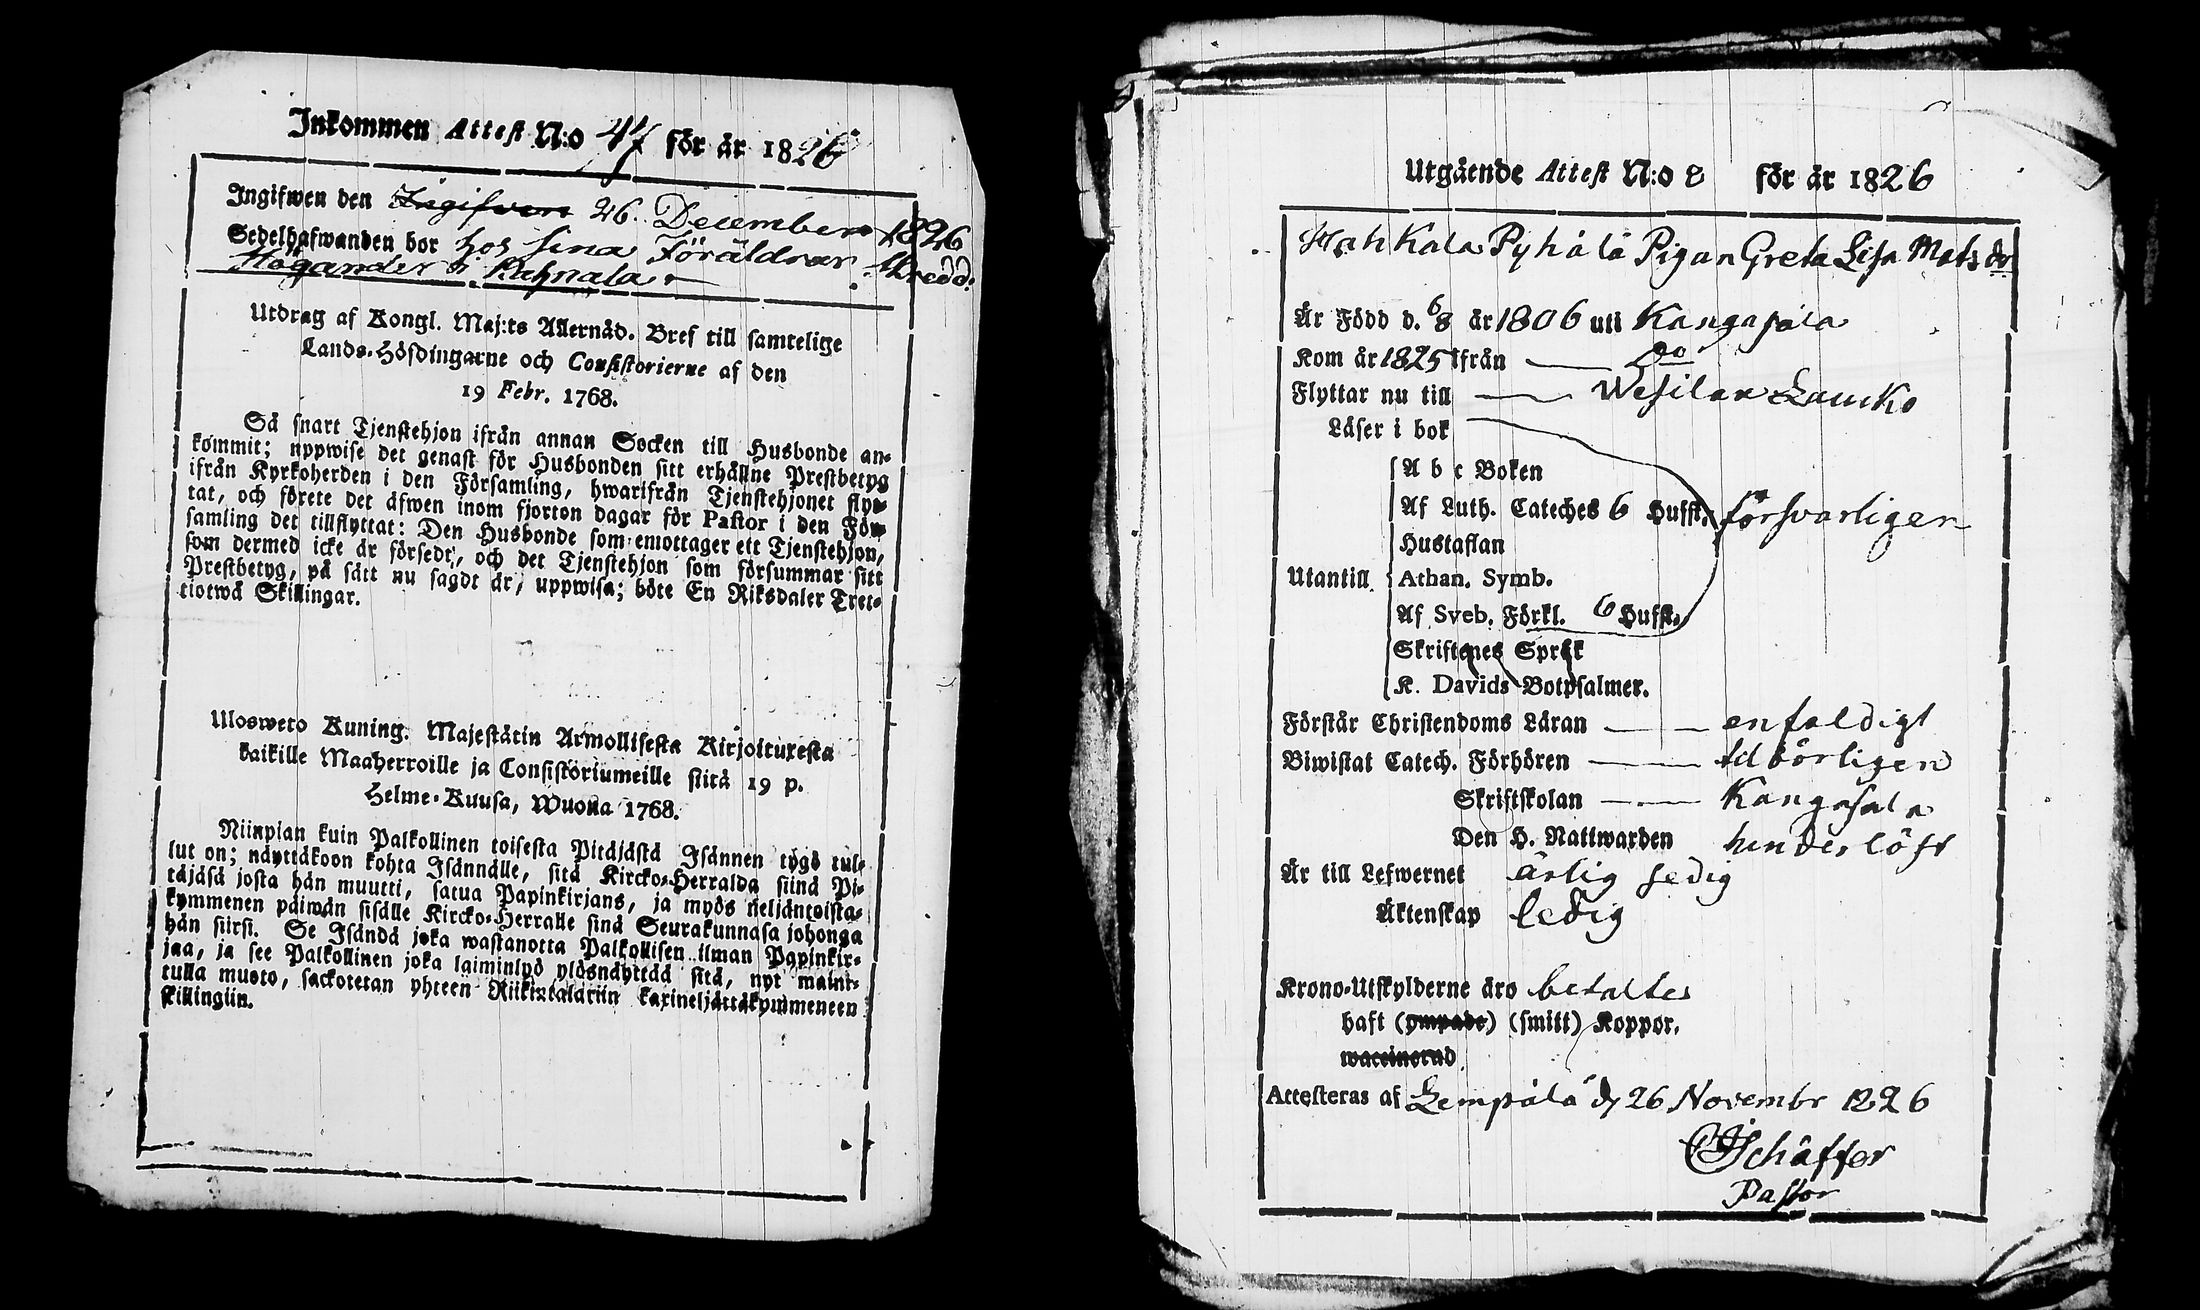 Inkommen Attest N:o 47 för år 1826
Ingifwen den Ingifven 26 December 1826
Sedelhafwanden bor hos sina Föräldrar
Högander i Kahnala
Utdrag af Kongl. Maj:ts Allernåd. Bref till samtelige
Lands-Höfdingarne och Consistorierne af den
19 Febr. 1768.
Så snart Tjenstehjon ifrån annan Socken till Husbonde an-
kommit; uppwise det genast för Husbonden sitt erhållne Prestbetyg
ifrån Kyrkoherden i den Församling, hwarifrån Tjenstehjonet flyt-
tat, och förete det äfwen inom fjorton dagar för Pastor i den För-
samling det tillflyttat: Den Husbonde som emottager ett Tjenstehjon,
som dermed icke är försedt, och det Tjenstehjon som försummar sitt
Prestbetyg, på sätt nu sagdt är, uppwisa; böte En Riksdaler Tret-
tiotwå Skillingar.
Ulosweto Kuning. Majestätin Armollisesta Kirjoituxesta
kaikille Maaherroille ja Consistoriumeille siitä 19 p.
Helme-Kuusa, Wuonna 1768.
Niinpian kuin Palkollinen toisesta Pitäjästä Isännen tygö tul-
lut on; näyttäkoon kohta Isännälle, sitä Kircko-Herralda siinä Pi-
täjäsä josta hän muutti, satua Papinkirjans, ja myös neljäntoista-
kymmenen päiwän sisälle Kircko-Herralle sinä Seurakunnasa johonga
hän siirsi. Se Isändä joka wastanotta Palkollisen ilman Papinkir-
jaa, ja see Palkollinen joka laiminlyö ylösnäyttää sitä, nyt maini-
tulla muoto, sackotetan yhteen Riikintalariin kaxineljättäkymmeneen
skillingiin.
Utgående Attest N:o 8 för år 1826
Kala Pyhälä Pigan Greta Lisa Mats dr
Är Född d. 6/8 år 1806 uti Kangasala
Kom år 1825 ifrån — Do
Flyttar nu till — Wesilax Laucko
Läser i bok
A b c Boken
Af Luth. Cateches 6 Hufst. försvarligen
Hustaflan
Utantill Athan. Symb.
Af Sveb. Förkl. 6 Hufst.
Skriftenes Språk
K. Davids Botpsalmer.
Förstår Christendoms Läran — enfaldigt
Biwistat Catech. Förhören — tilbörligen
Skriftskolan — Kangasala
Den H. Nattwarden
Är till Lefwernet ärlig sedig
Äktenskap ledig
Krono-Utskylderne äro betalter
haft (ympade) (smitt) Koppor.
waccinerad.
Attesteras af Lempälä d 26 Novembr 1826
Schäffer
Pastor